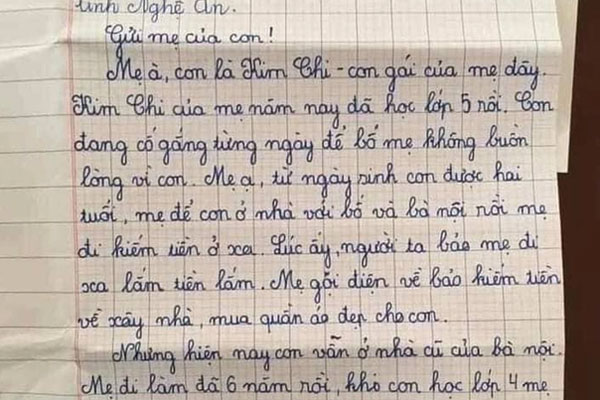 tỉnh Nghệ An.
Gửi mẹ của con!
Mẹ à, con là Kim Chi - con gái của mẹ đây.
Kim Chi của mẹ năm nay đã học lớp 5 rồi. Con
đang cố gắng từng ngày để bố mẹ không buồn
lòng vì con. Mẹ ạ, từ ngày sinh con được hai
tuổi, mẹ để con ở nhà với bố và bà nội rồi mẹ
đi kiếm tiền ở xa. Lúc ấy, người ta bảo mẹ đi
xa lắm tiền lắm. Mẹ gọi điện về bảo kiếm tiền
về xây nhà, mua quần áo đẹp cho con.
Nhưng hiện nay con vẫn ở nhà cũ của bà nội.
Mẹ đi làm đã 6 năm rồi, khi con học lớp 4 mẹ